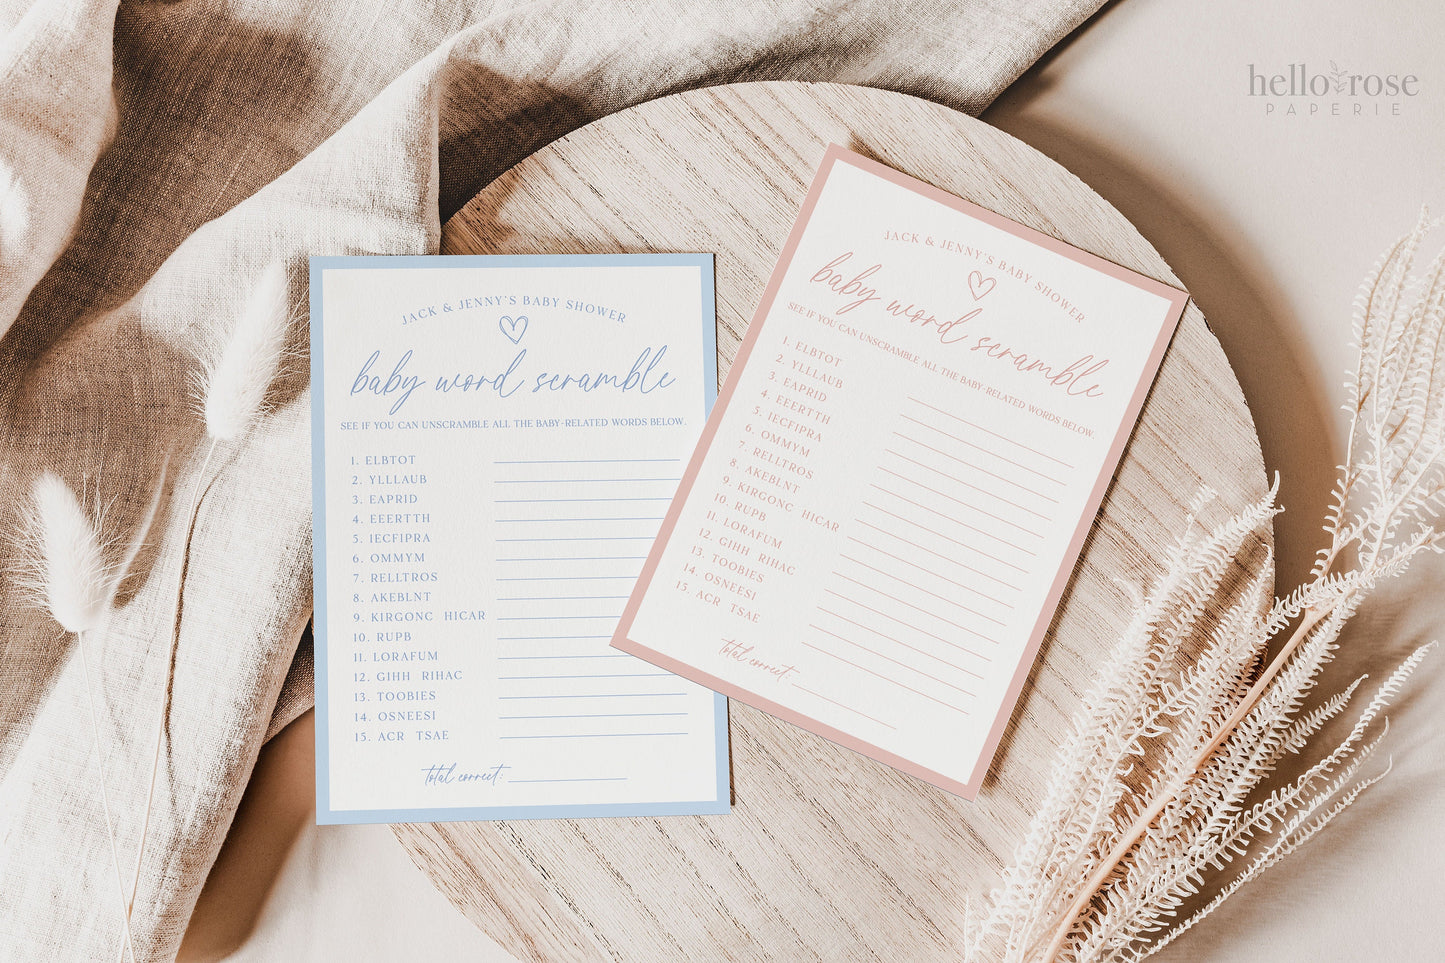 hello rose
PAPERIE
JACK & JENNY'S BABY SHOWER
baby word scramble
SEE IF YOU CAN UNSCRAMBLE ALL THE BABY-RELATED WORDS BELOW.
1. ELBTOT
2. YLLLAUB
3. EAPRID
4. EEERTTH
5. IECFIPRA
6. OMMYM
7. RELLTROS
8. AKEBLNT
9. KIRGONC HICAR
10. RUPB
11. LORAFUM
12. GIHH RIHAC
13. TOOBIES
14. OSNEESI
15. ACR TSAE
total correct:
JACK & JENNY'S BABY SHOWER
baby word scramble
SEE IF YOU CAN UNSCRAMBLE ALL THE BABY-RELATED WORDS BELOW.
1. ELBTOT
2. YLLLAUB
3. EAPRID
4. EEERTTH
5. IECFIPRA
6. OMMYM
7. RELLTROS
8. AKEBLNT
9. KIRGONC HICAR
10. RUPB
11. LORAFUM
12. GIHH RIHAC
13. TOOBIES
14. OSNEESI
15. ACR TSAE
total correct: